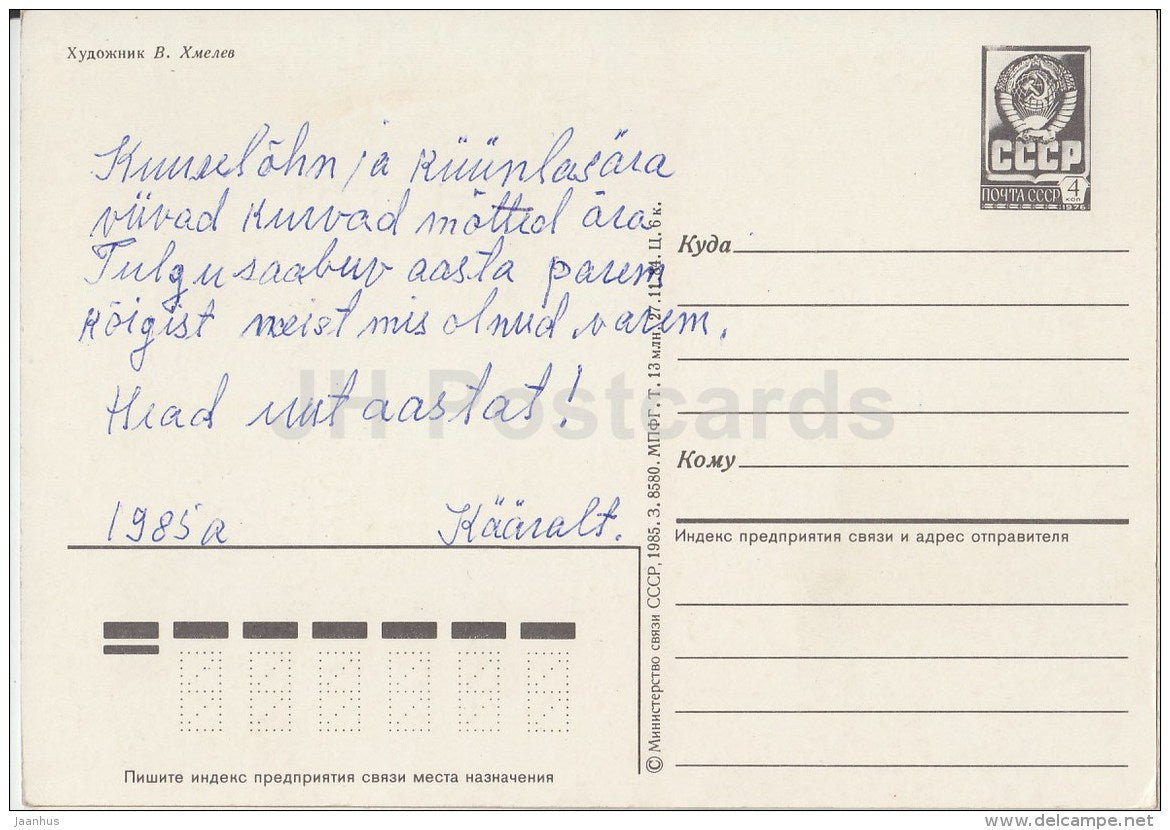 Художник В. Хмелев
СССР
ПОЧТА СССР 4 коп
1976
Kuuselõhn ja küünlasära
viivad kurvad mõtted ära
Tulgu saabuv aasta parem
kõigist neist mis olnud varem.
Head uut aastat!
1985a Kääralt.
Куда
Кому
Индекс предприятия связи и адрес отправителя
© Министерство связи СССР, 1985. З. 8580. МПФГ. Т. 13 млн. 27.11.84. Ц. 6 к.
Пишите индекс предприятия связи места назначения
JH Postcards
Jaanhus
www.delcampe.net